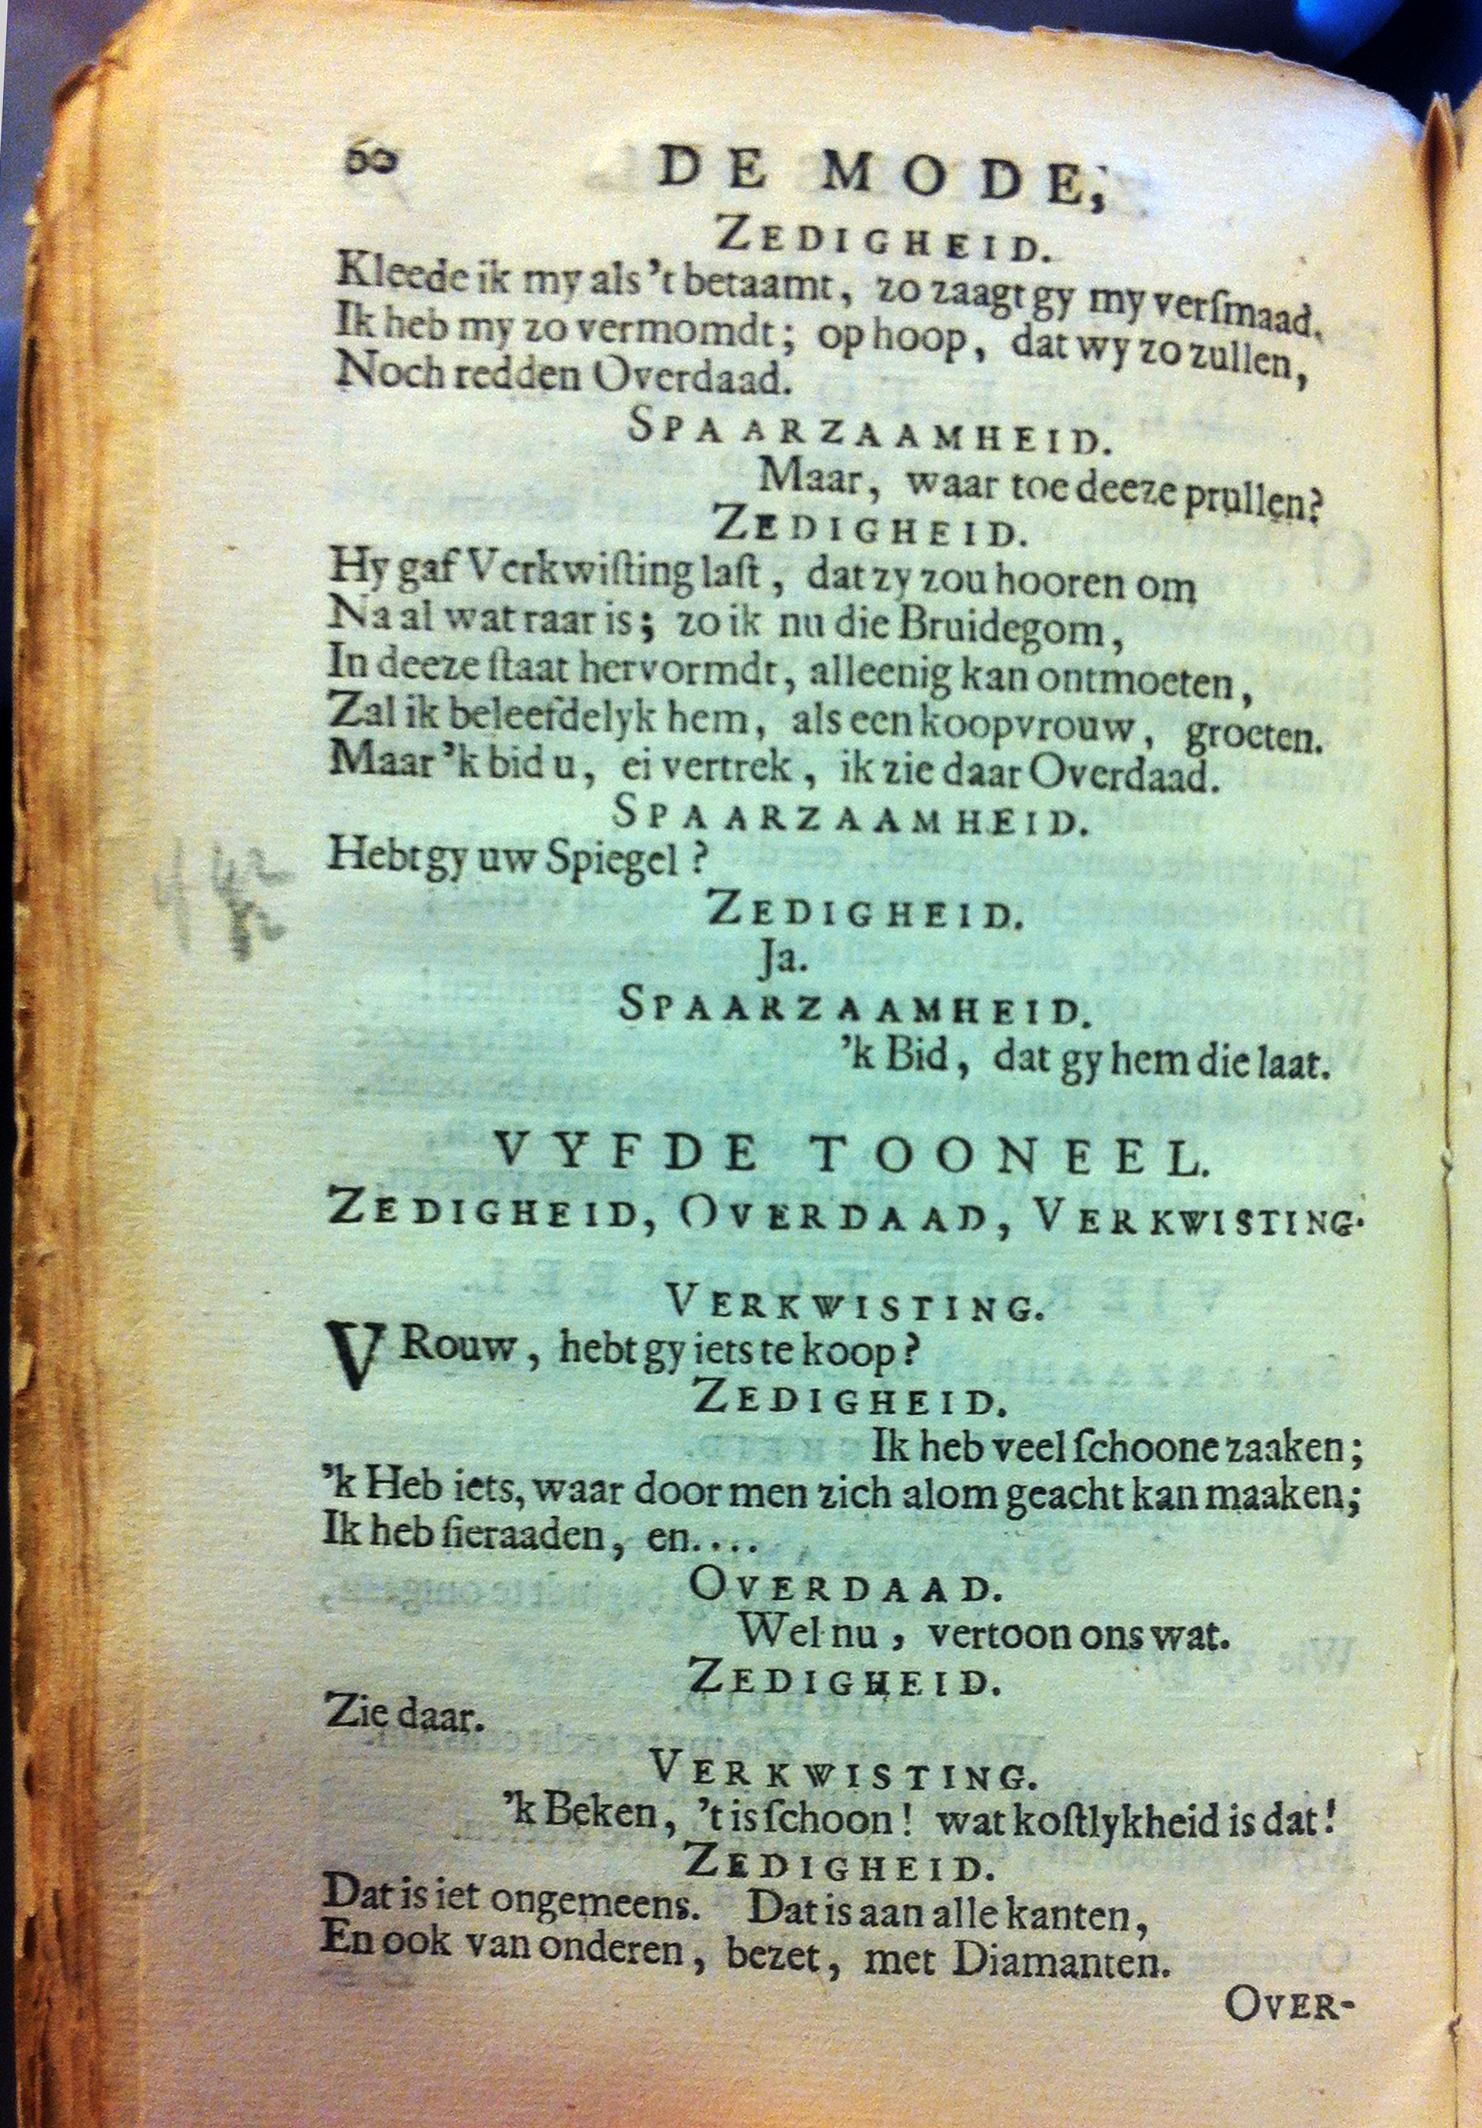 60 DE MODE,
ZEDIGHEID.
Kleede ik my als 't betaamt, zo zaagt gy my verſmaad.
Ik heb my zo vermomdt; op hoop, dat wy zo zullen,
Noch redden Overdaad.
SPAARZAAMHEID.
Maar, waar toe deeze prullen?
ZEDIGHEID.
Hy gaf Verkwiſting laſt, dat zy zou hooren om
Na al wat raar is; zo ik nu die Bruidegom,
In deeze ſtaat hervormdt, alleenig kan ontmoeten,
Zal ik beleefdelyk hem, als een koopvrouw, groeten.
Maar 'k bid u, ei vertrek, ik zie daar Overdaad.
SPAARZAAMHEID.
Hebt gy uw Spiegel?
ZEDIGHEID.
Ja.
SPAARZAAMHEID.
'k Bid, dat gy hem die laat.
VYFDE TOONEEL.
ZEDIGHEID, OVERDAAD, VERKWISTING.
VERKWISTING.
VRouw, hebt gy iets te koop?
ZEDIGHEID.
Ik heb veel ſchoone zaaken;
'k Heb iets, waar door men zich alom geacht kan maaken;
Ik heb ſieraaden, en....
OVERDAAD.
Wel nu, vertoon ons wat.
ZEDIGHEID.
Zie daar.
VERKWISTING.
'k Beken, 't is ſchoon! wat koſtlykheid is dat!
ZEDIGHEID.
Dat is iet ongemeens. Dat is aan alle kanten,
En ook van onderen, bezet, met Diamanten.
OVER-